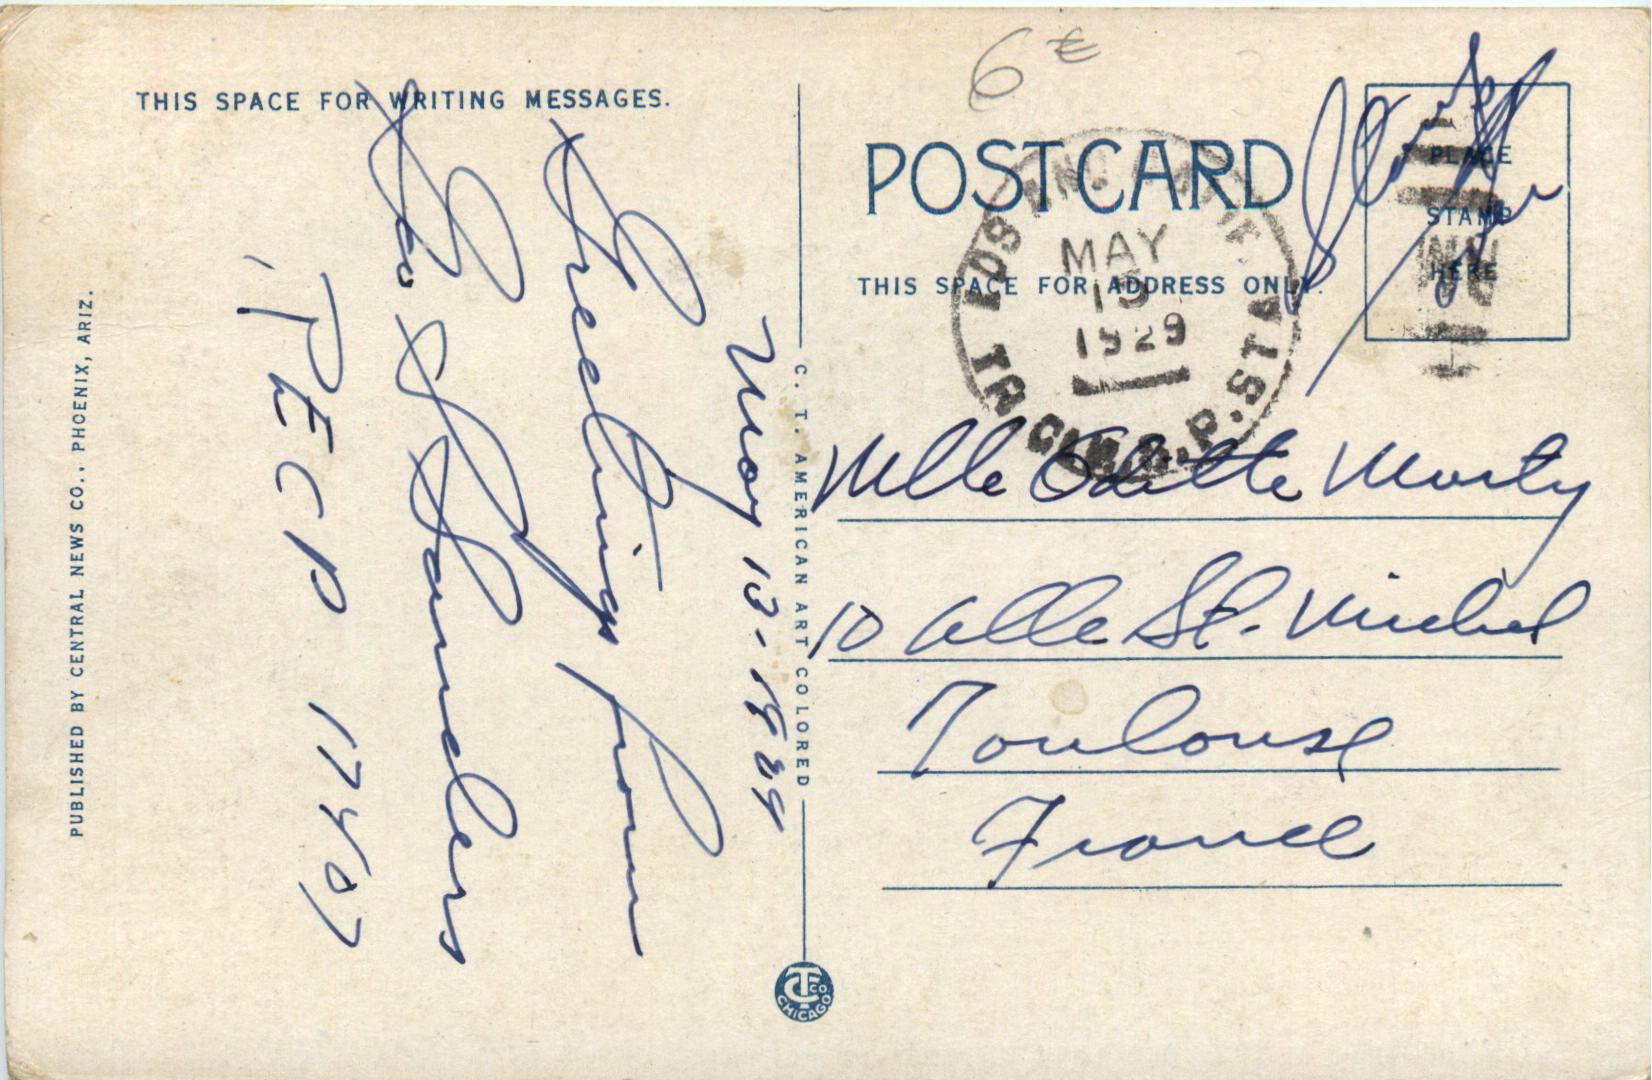 6 €
THIS SPACE FOR WRITING MESSAGES.
May 13-1929
Greetings from
Geo L Sanders
T.P.E.C.P 17407
PUBLISHED BY CENTRAL NEWS CO., PHOENIX, ARIZ.
C. T. AMERICAN ART COLORED
CT CO. CHICAGO
POST CARD
THIS SPACE FOR ADDRESS ONLY.
PLACE
STAMP
HERE
MAY
1929
Mlle Odette Marty
10 Alle St. Michel
Toulouse
France